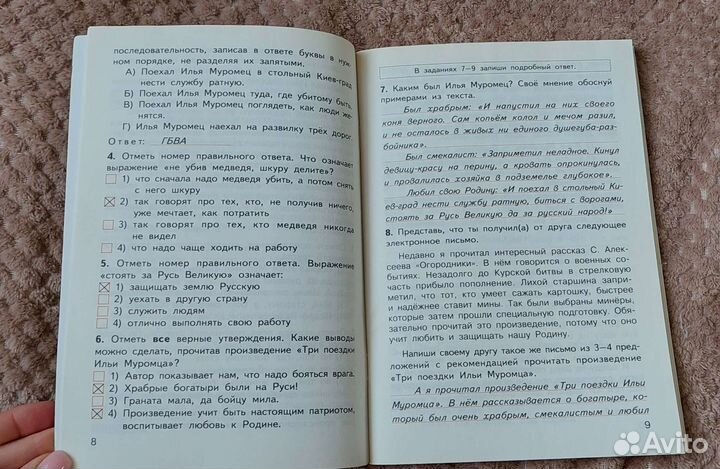 последовательность, записав в ответе буквы в нуж-
ном порядке, не разделяя их запятыми.
А) Поехал Илья Муромец в стольный Киев-град
нести службу ратную.
Б) Поехал Илья Муромец туда, где убитому быть.
В) Поехал Илья Муромец поглядеть, как люди же-
нятся.
Г) Илья Муромец наехал на развилку трёх дорог.
Ответ: ГБВА
4. Отметь номер правильного ответа. Что означает
выражение «не убив медведя, шкуру делите»?
1) что сначала надо медведя убить, а потом снять
с него шкуру
2) так говорят про тех, кто, не получив ничего,
уже мечтает, как потратить
3) так говорят про тех, кто медведя никогда
не видел
4) что надо чаще ходить на работу
5. Отметь номер правильного ответа. Выражение
«стоять за Русь Великую» означает:
1) защищать землю Русскую
2) уехать в другую страну
3) служить людям
4) отлично выполнять свою работу
6. Отметь все верные утверждения. Какие выводы
можно сделать, прочитав произведение «Три поездки
Ильи Муромца»?
1) Автор показывает нам, что надо бояться врага.
2) Храбрые богатыри были на Руси!
3) Граната мала, да бойцу мила.
4) Произведение учит быть настоящим патриотом,
воспитывает любовь к Родине.
8
В заданиях 7—9 запиши подробный ответ.
7. Каким был Илья Муромец? Своё мнение обоснуй
примерами из текста.
Был храбрым: «И напустил на них своего
коня верного. Сам копьём колол и мечом разил,
и не осталось в живых ни единого душегуба-раз-
бойника».
Был смекалист: «Заприметил неладное. Кинул
девицу-красу на перину, а кровать опрокинулась,
и провалилась хозяйка в подземелье глубокое».
Любил свою Родину: «И поехал в стольный Ки-
ев-град нести службу ратную, биться с ворогами,
стоять за Русь Великую да за русский народ!»
8. Представь, что ты получил(а) от друга следующее
электронное письмо.
Недавно я прочитал интересный рассказ С. Алек-
сеева «Огородники». В нём говорится о военных со-
бытиях. Незадолго до Курской битвы в стрелковую
часть прибыло пополнение. Лихой старшина запри-
метил, что тот, кто умеет сажать картошку, быстрее
и надёжнее ставит мины. Так были выбраны минёры,
которые затем прошли специальную подготовку. Обя-
зательно прочитай это произведение, потому что оно
учит любить и защищать нашу Родину.
Напиши своему другу такое же письмо из 3—4
предложений с рекомендацией прочитать произведение
«Три поездки Ильи Муромца».
А я прочитал произведение «Три поездки Ильи
Муромца». В нём рассказывается о богатыре, ко-
торый был очень храбрым, смекалистым и любил
9
Avito